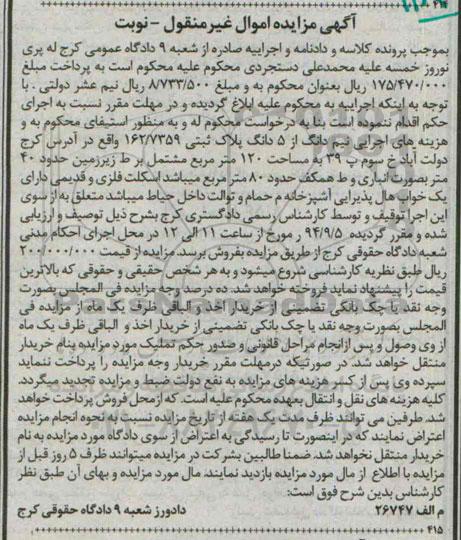 آگهی مزایده اموال غیرمنقول - نوبت
بموجب پرونده کلاسه و دادنامه و اجراییه صادره از شعبه ۹ دادگاه عمومی کرج له پری
نوروز خمسه علیه محمدعلی دستجردی محکوم علیه محکوم است به پرداخت مبلغ
۱۷۵/۴۷۰/۰۰۰ ریال بعنوان محکوم به و مبلغ ۸/۷۳۳/۵۰۰ ریال نیم عشر دولتی . با
توجه به اینکه اجراییه به محکوم علیه ابلاغ گردیده و در مهلت مقرر نسبت به اجرای
حکم اقدام ننموده است بنا به درخواست محکوم له و به منظور استیفای محکوم به و
هزینه های اجرایی نیم دانگ از ۵ دانگ پلاک ثبتی ۱۶۲/۷۳۵۹ واقع در آدرس کرج
دولت آباد خ سوم پ ۳۹ به مساحت ۱۲۰ متر مربع مشتمل بر ط زیرزمین حدود ۴۰
متر بصورت انباری و ط همکف حدود ۸۰ متر مربع میباشد اسکلت فلزی و قدیمی دارای
یک خواب هال پذیرایی آشپزخانه م حمام و توالت داخل حیاط میباشد متعلق به از سوی
این اجرا توقیف و توسط کارشناس رسمی دادگستری کرج بشرح ذیل توصیف و ارزیابی
شده و مقرر گردیده ۹۴/۹/۵ ر مورج از ساعت ۱۱ الی ۱۲ در محل اجرای احکام مدنی
شعبه دادگاه حقوقی کرج از طریق مزایده بفروش برسد. مزایده از قیمت ۲۰۰/۰۰۰/۰۰۰
ریال طبق نظریه کارشناسی شروع میشود و به هر شخص حقیقی و حقوقی که بالاترین
قیمت را پیشنهاد نماید فروخته خواهد شد. ده درصد وجه مزایده فی المجلس بصورت
وجه نقد یا چک بانکی تضمینی از خریدار اخذ و الباقی ظرف یک ماه از مزایده فی
المجلس بصورت وجه نقد یا چک بانکی تضمینی از خریدار اخذ و الباقی ظرف یک ماه
از وی وصول و پس از انجام مراحل قانونی و صدور حکم تملیک مورد مزایده بنام خریدار
منتقل خواهد شد. در صورتیکه درمهلت مقرر خریدار وجه مزایده را پرداخت ننماید
سپرده وی پس از کسر هزینه های مزایده به نفع دولت ضبط و مزایده تجدید میگردد.
کلیه هزینه های نقل و انتقال بعهده محکوم علیه است. که از محل فروش پرداخت خواهد
شد. طرفین می توانند ظرف مدت یک هفته از تاریخ مزایده نسبت به نحوه انجام مزایده
اعتراض نمایند که در اینصورت تا رسیدگی به اعتراض از سوی دادگاه مورد مزایده به نام
خریدار منتقل نخواهد شد. ضمنا طالبین بشرکت در مزایده میتوانند ظرف ۵ روز قبل از
مزایده با اطلاع از مال مورد مزایده بازدید نمایند. مال مورد مزایده و بهای آن طبق نظر
کارشناس بدین شرح فوق است:
م الف ۲۶۷۴۷ دادورز شعبه ۹ دادگاه حقوقی کرج
۴۱۵